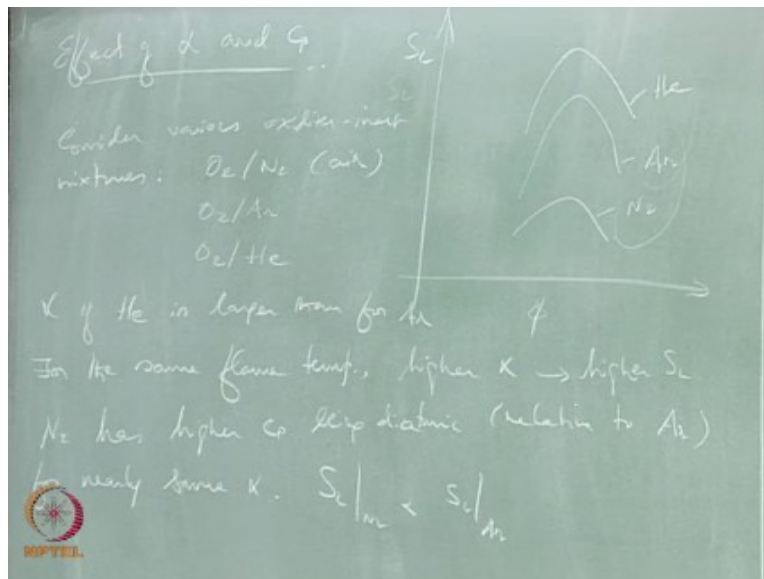 Effect of α and Cp
Consider various oxidizer-inert
mixtures: O2/N2 (air)
O2/Ar
O2/He
SL
SL
He
Ar
N2
φ
α of He is larger than for Ar
For the same flame temp., higher α → higher SL
N2 has higher cp being diatomic (relative to Ar)
for nearly same α. SL|N2 < SL|Ar
NPTEL